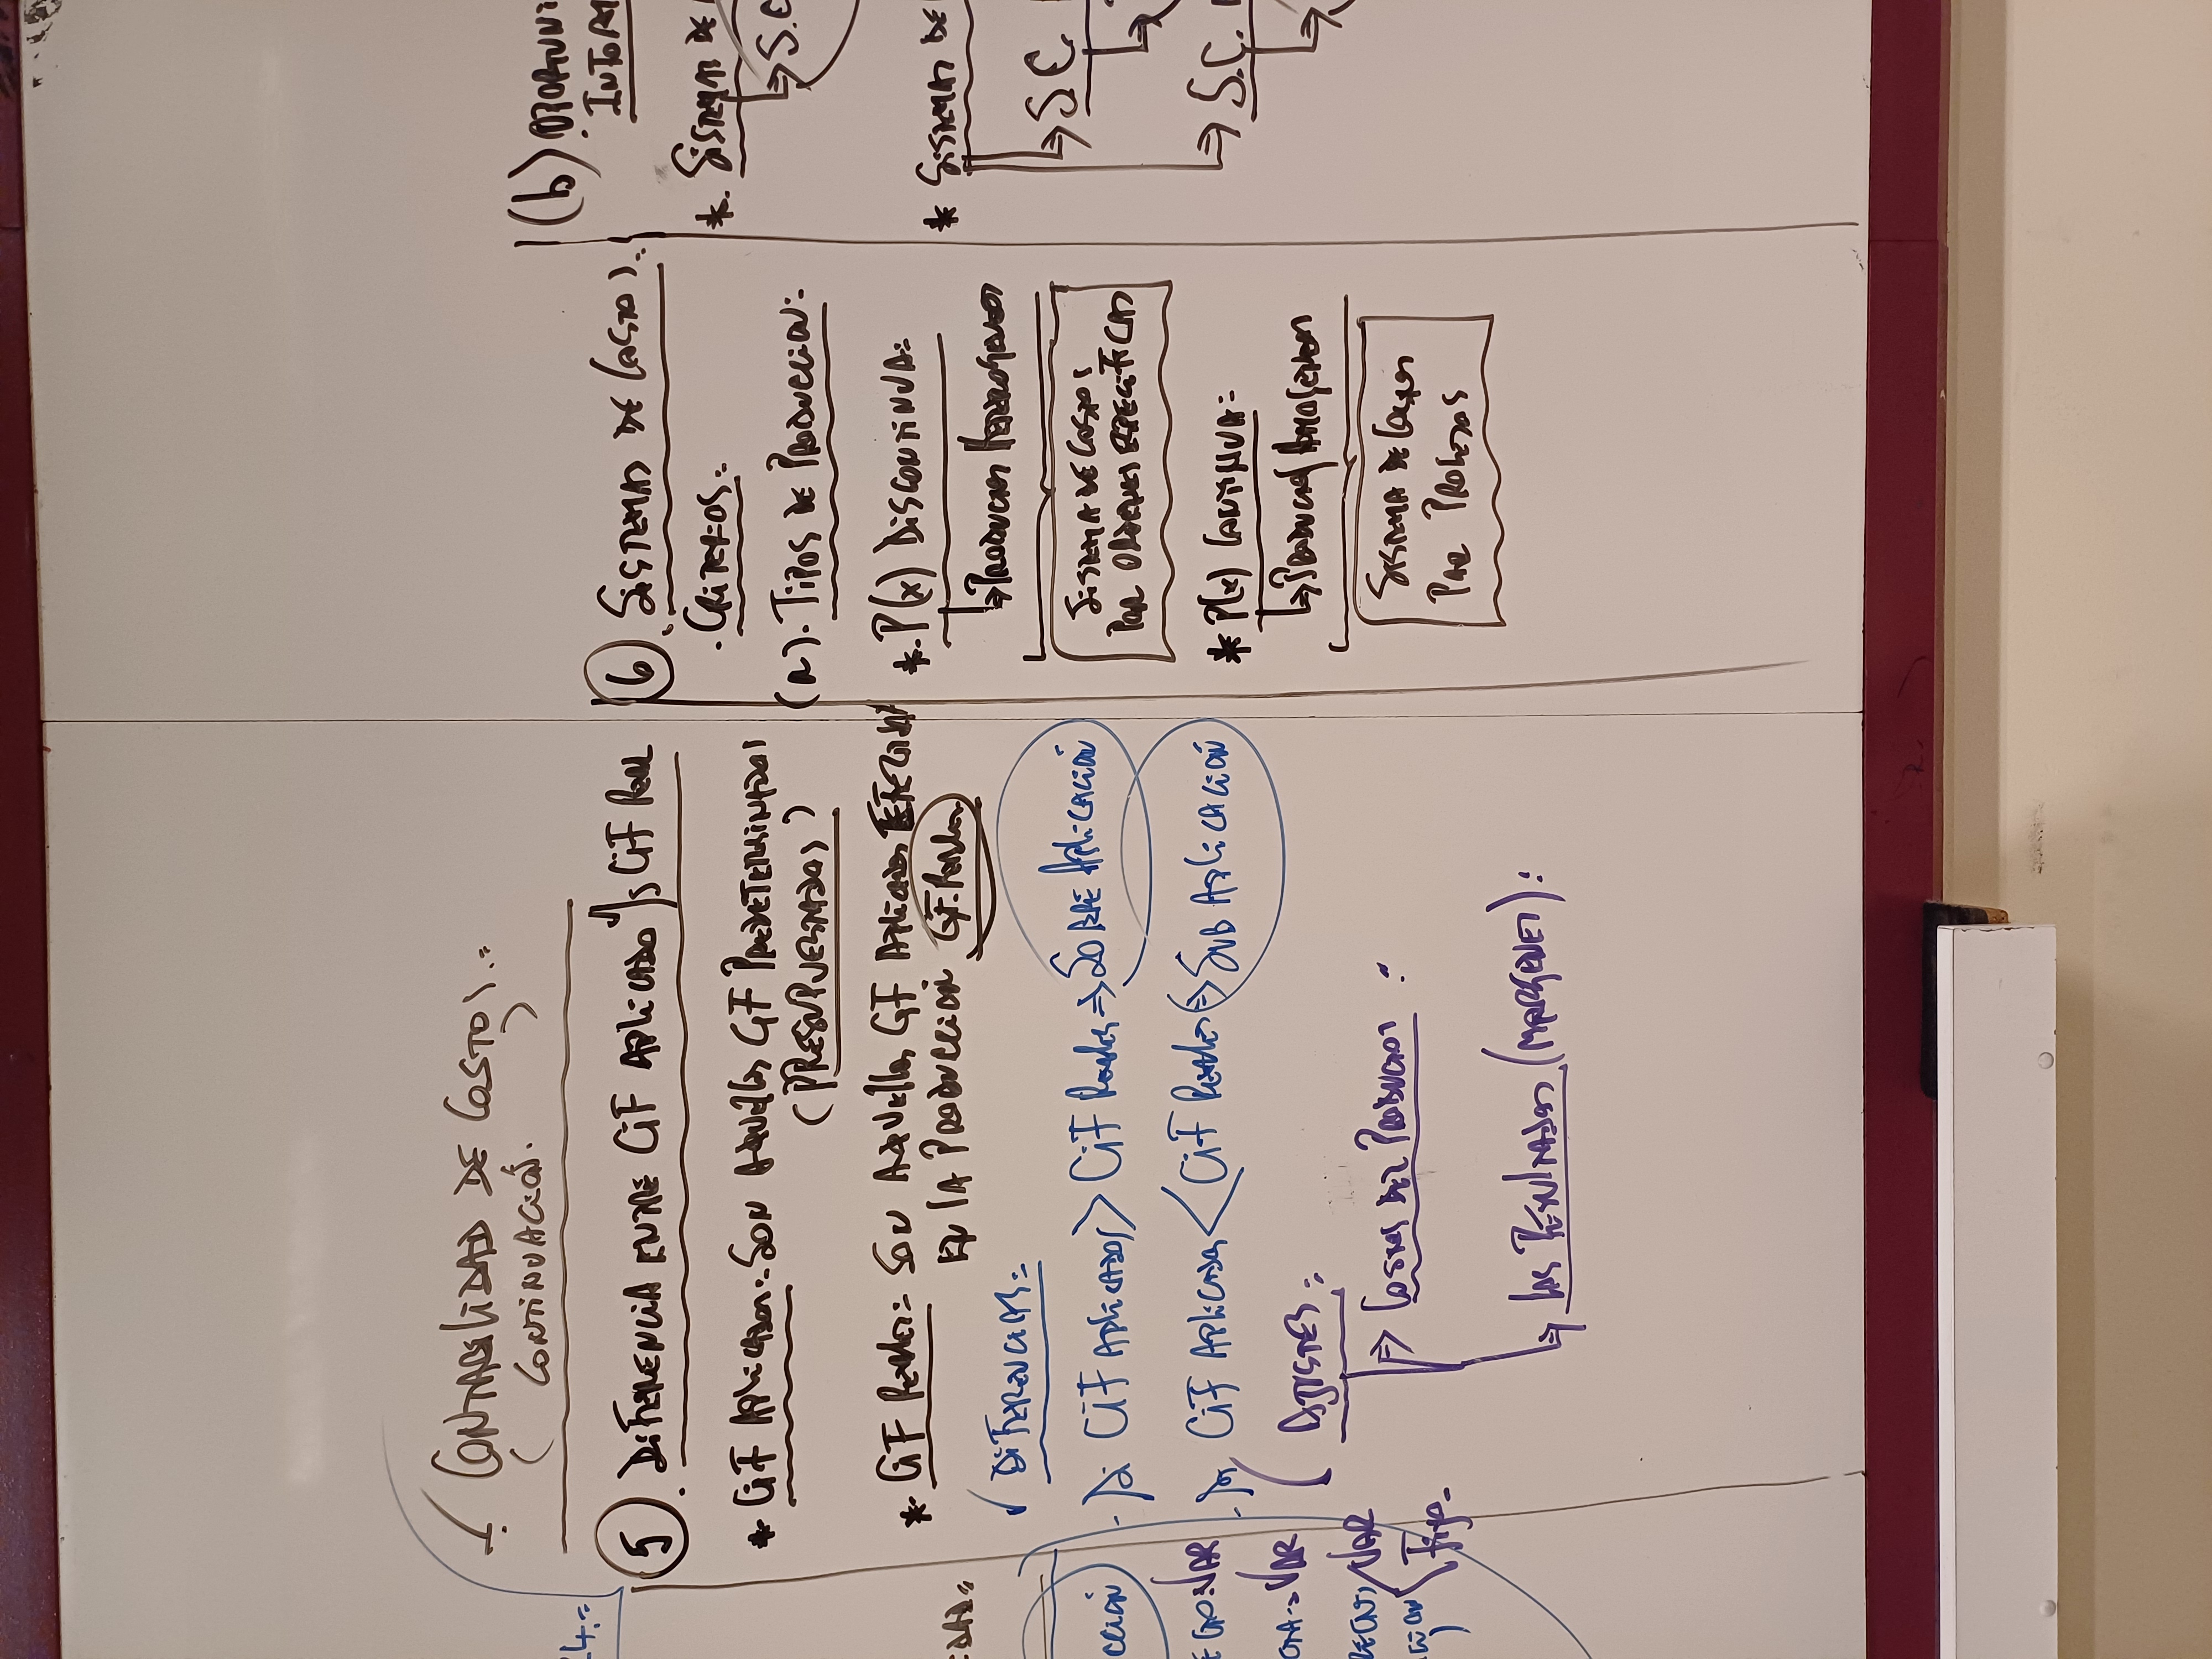 CONTABILIDAD DE COSTOS.=
(CONTINUACIÓN.)
5. DIFERENCIA ENTRE CIF APLICADO V/S CIF REAL
* CIF APLICADOS:. SON AQUELLOS CIF PREDETERMINADOS
(PRESUPUESTADOS)
* CIF REALES:= SON AQUELLOS CIF APLICADOS
EN LA PRODUCCIÓN CIF. REALES
✓ DIFERENCIAS:=
- Si CIF APLICADOS > CIF REALES => SOBRE APLICACIÓN
- Si CIF APLICADOS < CIF REALES => SUB APLICACIÓN
AJUSTES:=
=> COSTOS DEL PRODUCTOS :
=> LOS RESULTADOS (MARGENES):
6. SISTEMAS DE COSTOS.=
. CRITERIOS:=
(a). TIPOS DE PRODUCCION:=
*. P(x) DISCONTINUA:=
→ PRODUCTOS HETEROGENEOS
SISTEMA DE COSTOS
POR ORDENES ESPECIFICAS
* P(x) CONTINUA:=
→ PRODUCTOS HOMOGENEOS
SISTEMA DE COSTOS
POR PROCESOS
(b) OPORTUNI
INFORM
*. SISTEMAS DE
→ S.C
* SISTEMAS DE
=> S.C.
=> S.C.
24.=
DAD=
CCIÓN
VAR
VAR
VAR
Fijo.